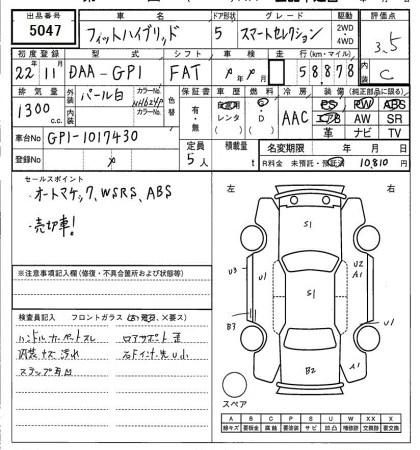 出品番号 車名 ドア形状 グレード 駆動 評価点
5047 フィットハイブリッド 5 スマートセレクション 2WD・4WD 3.5
初度登録 型式 シフト 車検 走行(km・マイル) 内装
22年11月 DAA-GP1 FAT 年 月 58878 C
排気量 外装 パール白 カラーNo. NH624P 色替 車歴 燃料 冷房 装備(純正部品に限る)
1300c.c. 内装 カラーNo. 有・無 自家用 レンタ G・D AAC PS PW ABS
エアB AW SR
革 ナビ TV
車台No GP1-1017430 定員 積載量 名変期限 年 月 日
登録No 5人 t R料金 未預託・預託済 10,810円
セールスポイント
・オートマチック、WSRS、ABS
・売切車!
左 右
S1
U3 U1 U2 A1
S1
B3 U1
B2 A1
スペア
※注意事項記入欄(修復・不具合箇所および状態等)
検査員記入 フロントガラス
ハンドル カーペットスレ リアサポート 歪
内装 キズ 汚れ 右ドインナー先U小
A B C P S U W X XX
線キズ 要板金 腐触 要塗装 サビ 凹凸 補修跡 要交換